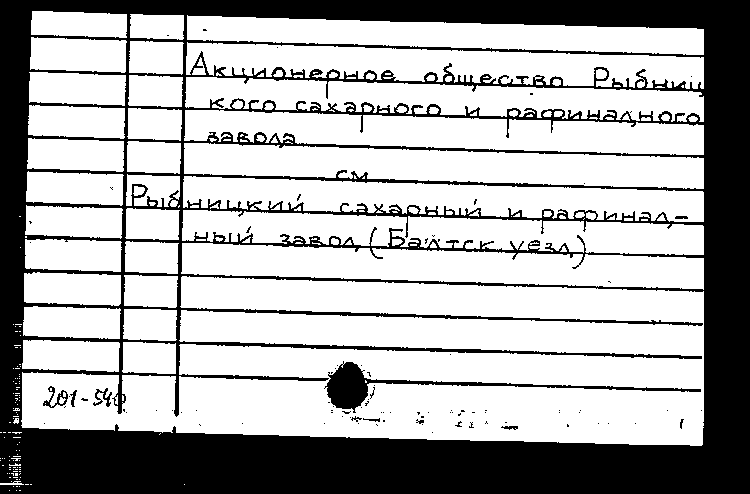 Акционерное общество Рыбниц
кого сахарного и рафинадного
завода
см
Рыбницкий сахарный и рафинад-
ный завод (Балтск уезд)
201-540